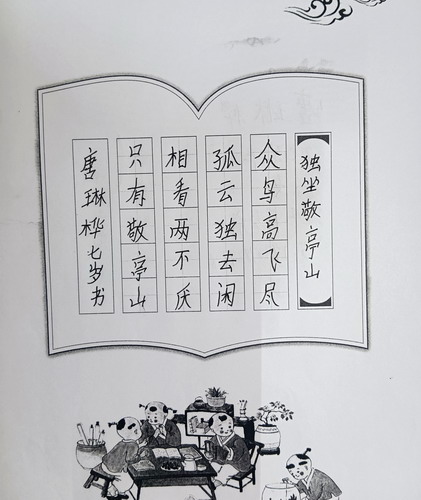 独坐敬亭山
众鸟高飞尽
孤云独去闲
相看两不厌
只有敬亭山
唐琳桦七岁书